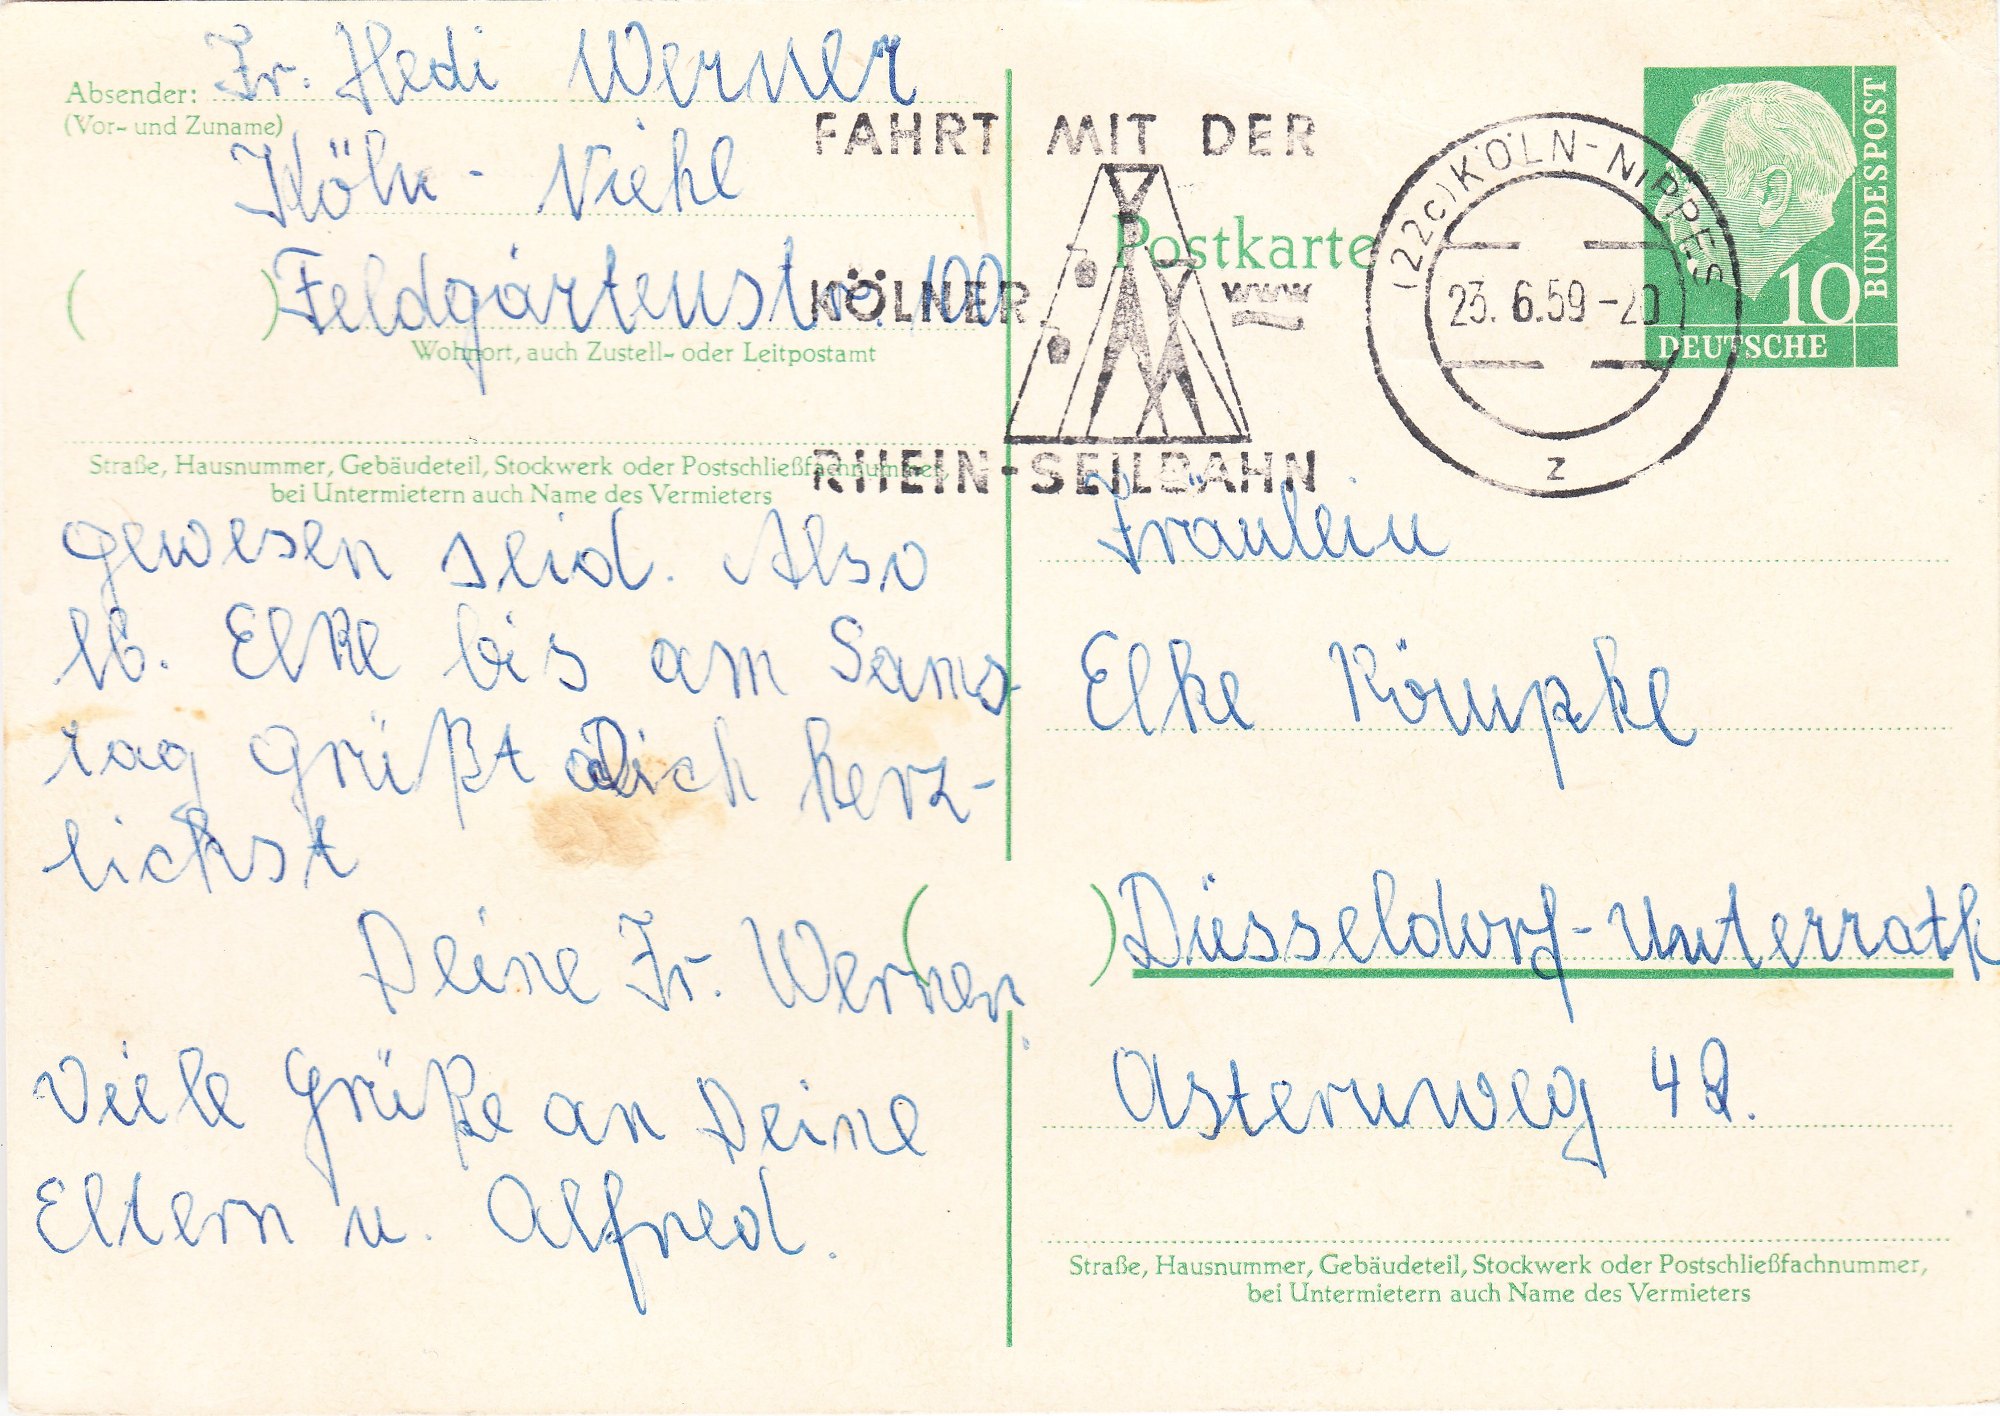 Absender: Fr. Hedi Werner
(Vor- und Zuname)
Köln - Niehl
( ) Feldgärtenstr. 100
Wohnort, auch Zustell- oder Leitpostamt
Straße, Hausnummer, Gebäudeteil, Stockwerk oder Postschließfachnummer,
bei Untermietern auch Name des Vermieters
gewesen seid. Also
lb. Elke bis am Sams-
tag grüßt Dich herz-
lichst
Deine Fr. Werner.
Viele Grüße an Deine
Eltern u. Alfred.
FAHRT MIT DER
KÖLNER
RHEIN-SEILBAHN
Postkarte
(22c) KÖLN-NIPPES
23.6.59-20
z
10
DEUTSCHE
BUNDESPOST
Fräulein
Elke Kömpke
( ) Düsseldorf-Unterrath
Asternweg 42.
Straße, Hausnummer, Gebäudeteil, Stockwerk oder Postschließfachnummer,
bei Untermietern auch Name des Vermieters